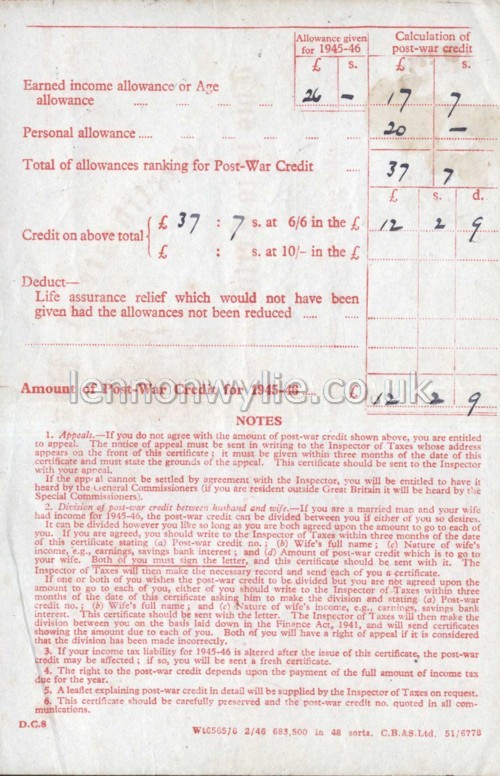 Allowance given for 1945-46
Calculation of post-war credit
£ s. £ s.
Earned income allowance or Age
allowance .... .... .... 26 – 17 7
Personal allowance .... .... .... .... 20 –
Total of allowances ranking for Post-War Credit .... 37 7
£ s. d.
Credit on above total { £ 37 : 7 s. at 6/6 in the £ 12 2 9
£ : s. at 10/– in the £
Deduct—
Life assurance relief which would not have been
given had the allowances not been reduced .... ....
Amount of Post-War Credit for 1945-46 £ 12 2 9
lennonwylie.co.uk
NOTES
1. Appeals.—If you do not agree with the amount of post-war credit shown above, you are entitled
to appeal. The notice of appeal must be sent in writing to the Inspector of Taxes whose address
appears on the front of this certificate; it must be given within three months of the date of this
certificate and must state the grounds of the appeal. This certificate should be sent to the Inspector
with your appeal.
If the appeal cannot be settled by agreement with the Inspector, you will be entitled to have it
heard by the General Commissioners (if you are resident outside Great Britain it will be heard by the
Special Commissioners).
2. Division of post-war credit between husband and wife.—If you are a married man and your wife
had income for 1945-46, the post-war credit can be divided between you if either of you so desires.
It can be divided however you like so long as you are both agreed upon the amount to go to each of
you. If you are agreed, you should write to the Inspector of Taxes within three months of the date
of this certificate stating (a) Post-war credit no.; (b) Wife's full name; (c) Nature of wife's
income, e.g., earnings, savings bank interest; and (d) Amount of post-war credit which is to go to
your wife. Both of you must sign the letter, and this certificate should be sent with it. The
Inspector of Taxes will then make the necessary record and send each of you a certificate.
If one or both of you wishes the post-war credit to be divided but you are not agreed upon the
amount to go to each of you, either of you should write to the Inspector of Taxes within three
months of the date of this certificate asking him to make the division and stating (a) Post-war
credit no.; (b) Wife's full name; and (c) Nature of wife's income, e.g., earnings, savings bank
interest. This certificate should be sent with the letter. The Inspector of Taxes will then make the
division between you on the basis laid down in the Finance Act, 1941, and will send certificates
showing the amount due to each of you. Both of you will have a right of appeal if it is considered
that the division has been made incorrectly.
3. If your income tax liability for 1945-46 is altered after the issue of this certificate, the post-war
credit may be affected; if so, you will be sent a fresh certificate.
4. The right to the post-war credit depends upon the payment of the full amount of income tax
due for the year.
5. A leaflet explaining post-war credit in detail will be supplied by the Inspector of Taxes on request.
6. This certificate should be carefully preserved and the post-war credit no. quoted in all com-
munications.
D.C.8 Wt C565/6 2/46 683,500 in 48 sorts. C.B.&S.Ltd. 51/6778